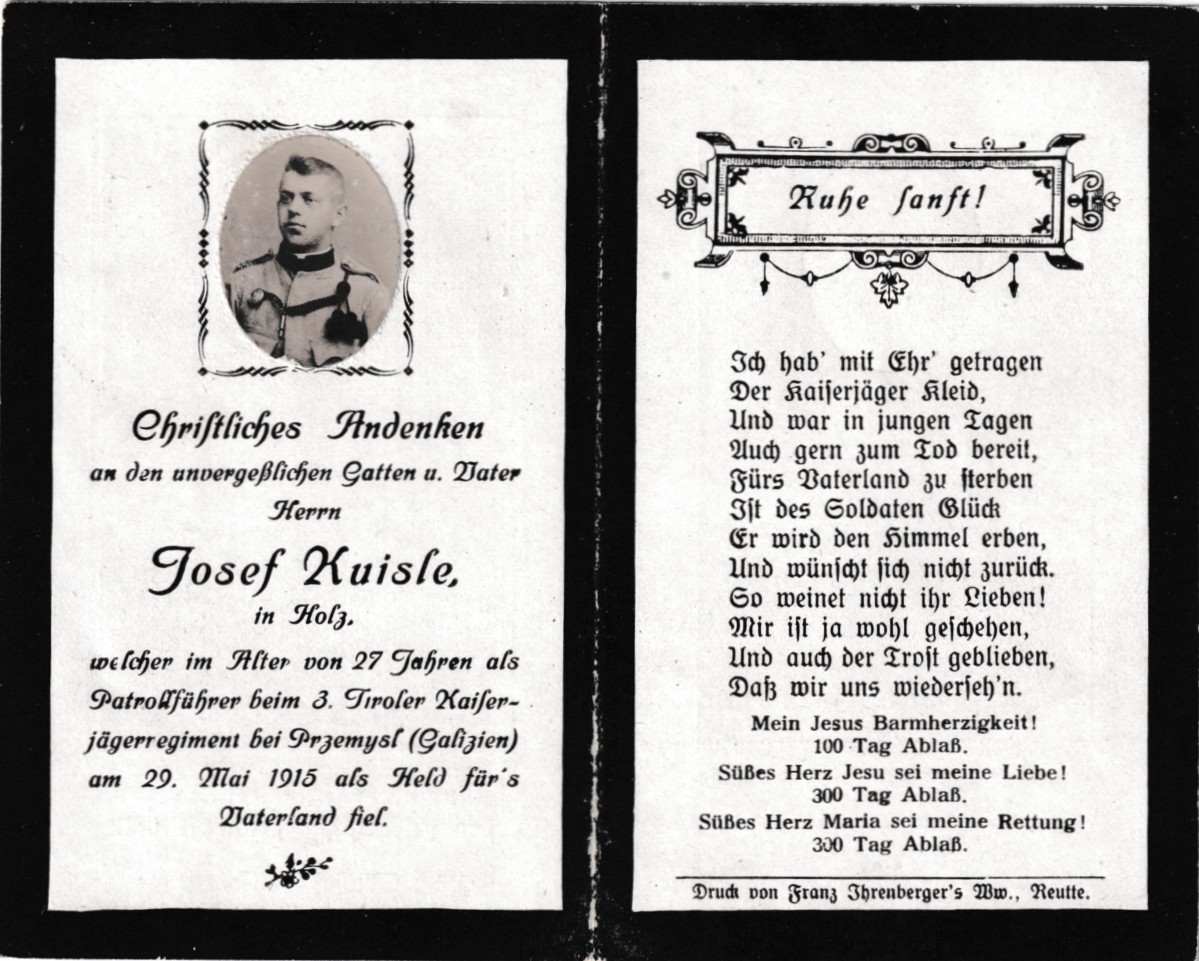 Christliches Andenken
an den unvergeßlichen Gatten u. Vater
Herrn
Josef Kuisle,
in Holz,
welcher im Alter von 27 Jahren als
Patrollführer beim 3. Tiroler Kaiser-
jägerregiment bei Przemysl (Galizien)
am 29. Mai 1915 als Held für's
Vaterland fiel.
Ruhe sanft!
Ich hab' mit Ehr' getragen
Der Kaiserjäger Kleid,
Und war in jungen Tagen
Auch gern zum Tod bereit,
Fürs Vaterland zu sterben
Ist des Soldaten Glück
Er wird den Himmel erben,
Und wünscht sich nicht zurück.
So weinet nicht ihr Lieben!
Mir ist ja wohl geschehen,
Und auch der Trost geblieben,
Daß wir uns wiederseh'n.
Mein Jesus Barmherzigkeit!
100 Tag Ablaß.
Süßes Herz Jesu sei meine Liebe!
300 Tag Ablaß.
Süßes Herz Maria sei meine Rettung!
300 Tag Ablaß.
Druck von Franz Ihrenberger's Ww., Reutte.